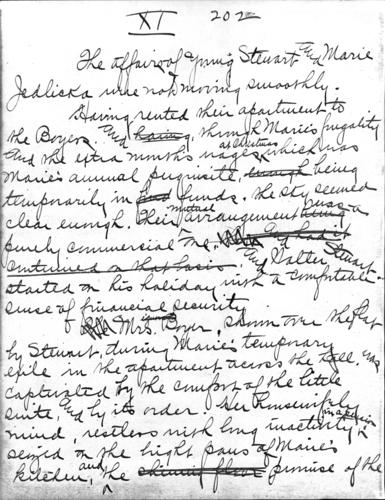 XI 202
The affairs of young Stewart and Marie
Jedlicka were not moving smoothly.
Having rented their apartment to
the Boyers, and having, through Marie's frugality
and the extra month's wages at Christmas, which was
Marie's annual perquisite, being
temporarily in funds, the sky seemed
clear enough. Their mutual arrangement was a
purely commercial one, and had it
continued on that basis and Walter Stewart
started on his holiday with a comfortable
sense of financial security
Mrs. Boyer, shown over the flat
by Stewart, during Marie's temporary
exile in the apartment across the hall, was
captivated by the comfort of the little
suite, and by its order. Her housewifely
mind, restless with long inactivity in a pension
seized on the bright pans of Marie's
kitchen, and the shining promise of the